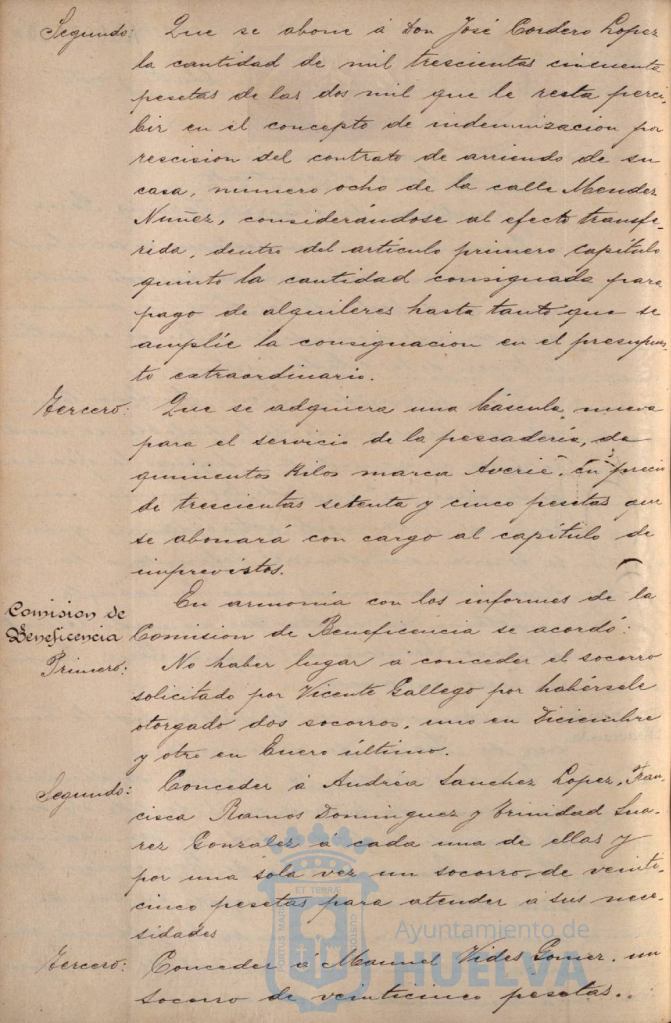 Segundo: Que se abone á Don José Cordero Lopez
la cantidad de mil trescientas cincuenta
pesetas de las dos mil que le resta perci-
bir en el concepto de indemnizacion por
rescision del contrato de arriendo de su
casa, número ocho de la calle Mendez
Nuñez, considerándose al efecto transfe-
rida, dentro del artículo primero capítulo
quinto la cantidad consignada para
pago de alquileres hasta tanto que se
amplíe la consignacion en el presupues-
to extraordinario.
Tercero: Que se adquiera una báscula nueva
para el servicio de la pescadería, de
quinientos Kilos marca Averic, en precio
de trescientas setenta y cinco pesetas que
se abonará con cargo al capítulo de
imprevistos.
Comision de
Beneficencia
En armonía con los informes de la
Comision de Beneficencia se acordó:
Primero: No haber lugar á conceder el socorro
solicitado por Vicente Gallego por habérsele
otorgado dos socorros, uno en Diciembre
y otro en Enero último.
Segundo: Conceder á Andréa Sanchez Lopez, Fran-
cisca Ramos Dominguez y Trinidad Sua-
rez Gonzalez á cada una de ellas y
por una sola vez un socorro de veinti-
cinco pesetas para atender á sus nece-
sidades
Tercero: Conceder á Manuel Vides Gomez, un
socorro de veinticinco pesetas.
PORTUS MARIS
ET TERRÆ
CUSTODIA
Ayuntamiento de
HUELVA